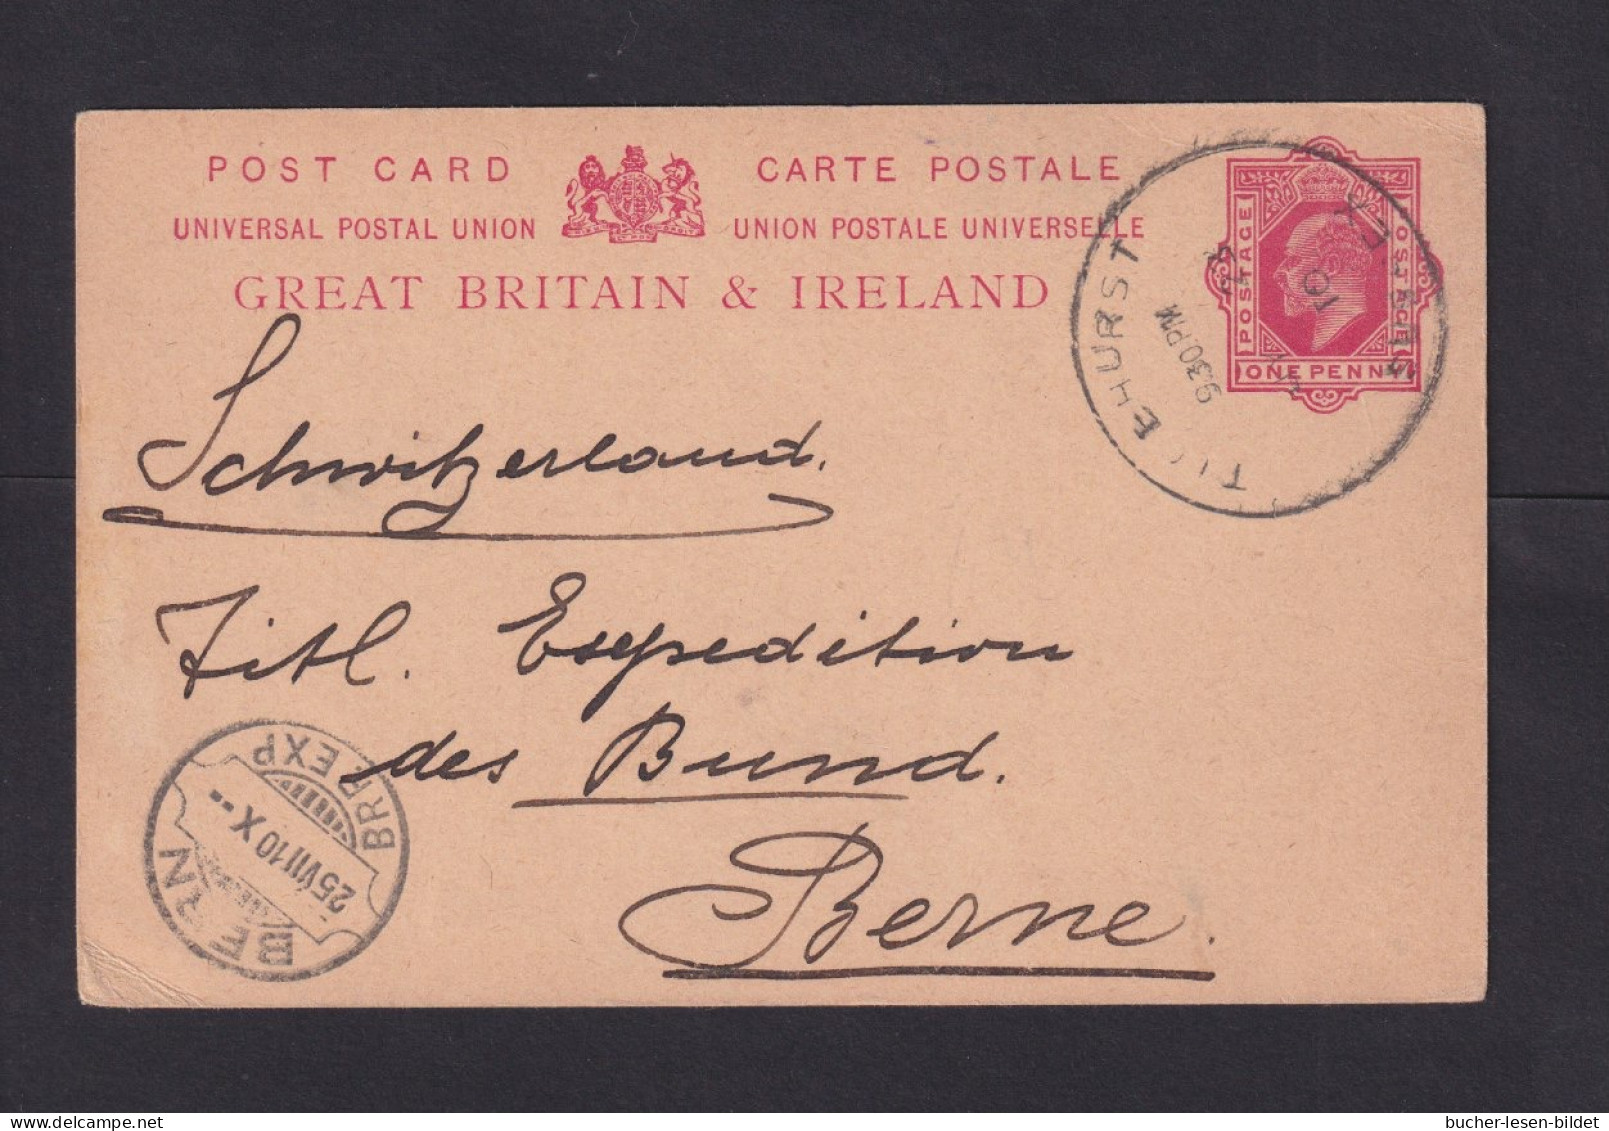 POST CARD CARTE POSTALE
UNIVERSAL POSTAL UNION UNION POSTALE UNIVERSELLE
GREAT BRITAIN & IRELAND
POSTAGE POSTAGE
ONE PENNY
TICEHURST SUSSEX
9.30PM
JY 23
10
Schwitzerland.
Titl. Expedition
des Bund.
Berne.
BERN BRR EXP
25 VII 10 X--
bucher-lesen-bildet